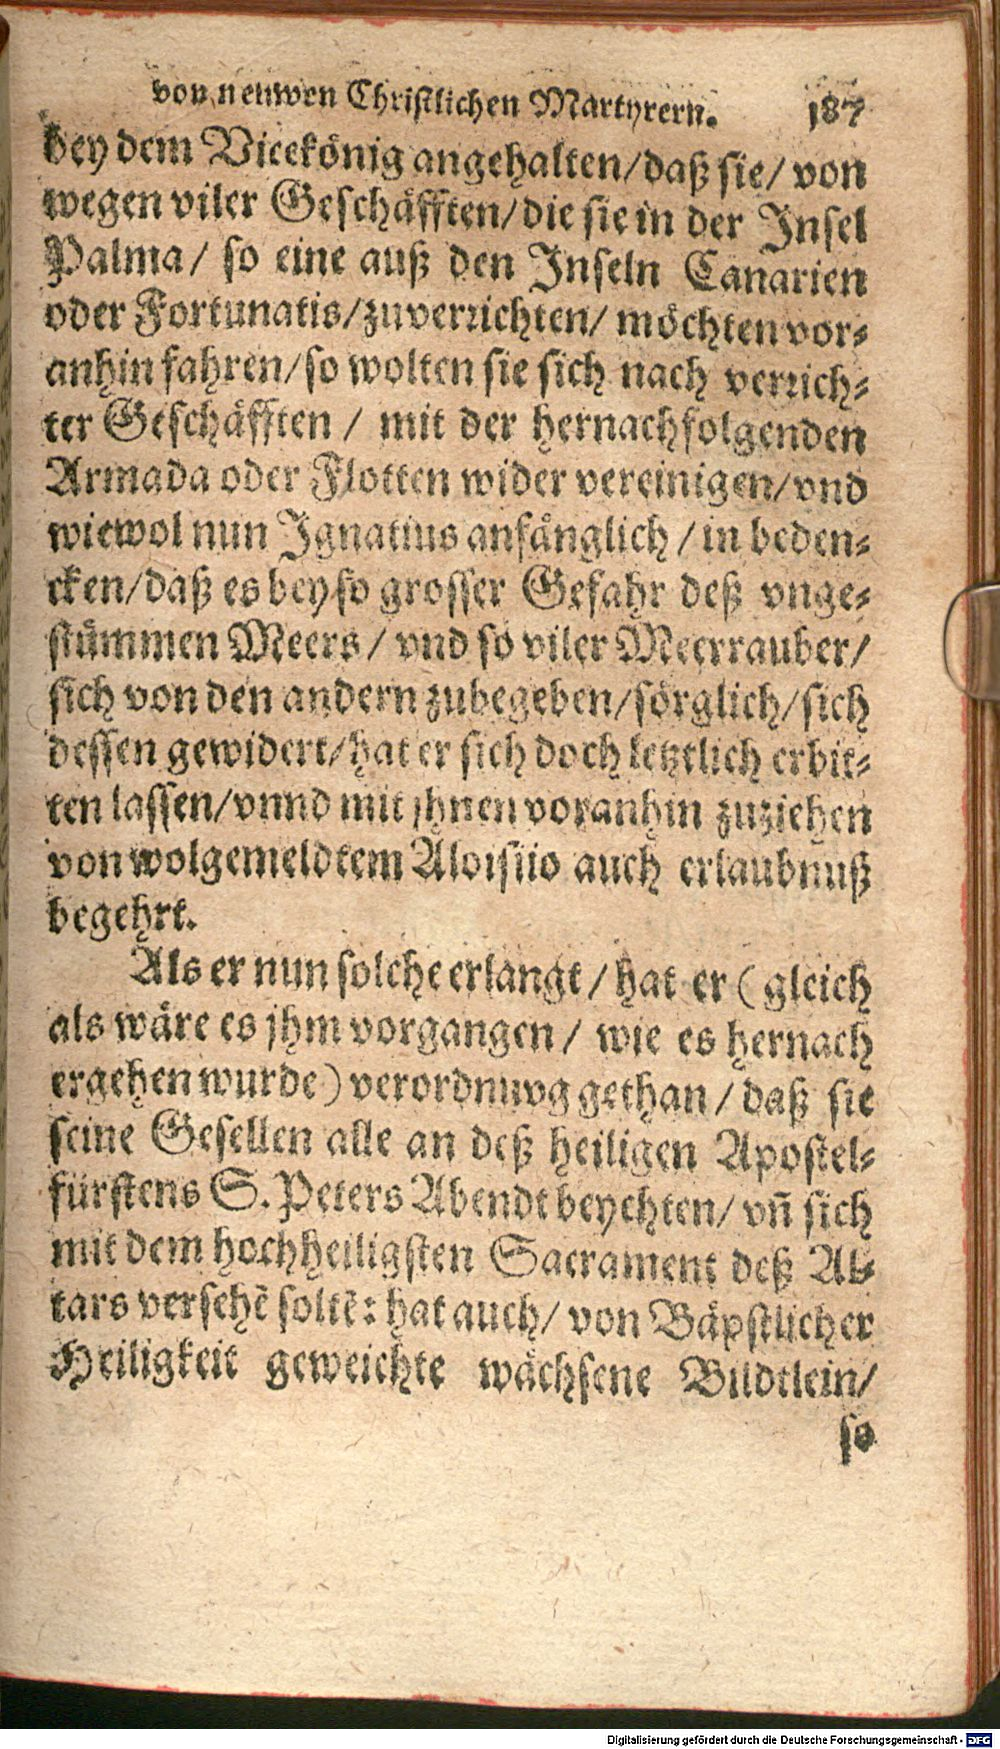 von neuwen Christlichen Martyrern. 187
bey dem Vicekönig angehalten/ daß sie/ von
wegen viler Geschäfften/ die sie in der Insel
Palma/ so eine auß den Inseln Canarien
oder Fortunatis/ zuverrichten/ möchten vor-
anhin fahren/ so wolten sie sich nach verrich-
ter Geschäfften / mit der hernachfolgenden
Armada oder Flotten wider vereinigen/ vnd
wiewol nun Ignatius anfänglich / in beden-
cken/ daß es bey so grosser Gefahr deß vnge-
stümmen Meers / vnd so viler Meerrauber/
sich von den andern zubegeben/ sörglich/ sich
dessen gewidert/ hat er sich doch letztlich erbit-
ten lassen/ vnnd mit jhnen voranhin zuziehen
von wolgemeldtem Aloisiio auch erlaubnuß
begehrt.
Als er nun solche erlangt / hat er ( gleich
als wäre es jhm vorgangen / wie es hernach
ergehen wurde ) verordnuvg gethan / daß sie
seine Gesellen alle an deß heiligen Apostel-
fürstens S. Peters Abendt beychten/ vñ sich
mit dem hochheiligsten Sacrament deß Al-
tars versehẽ soltẽ: hat auch/ von Bäpstlicher
Heiligkeit geweichte wächsene Bildtlein/
so
Digitalisierung gefördert durch die Deutsche Forschungsgemeinschaft - DFG